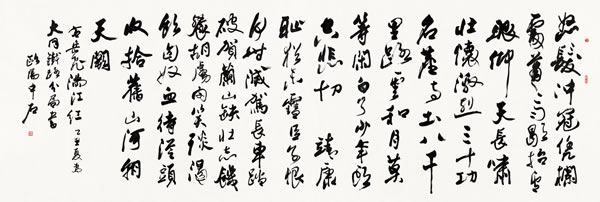 怒髮沖冠憑欄
處蕭〻雨歇抬望
眼仰天長嘯
壯懷激烈三十功
名塵與土八千
里路雲和月莫
等閑白了少年頭
空悲切 靖康
恥猶未雪臣子恨
何時滅駕長車踏
破賀蘭山缺壯志饑
餐胡虜肉笑談渴
飲匈奴血待從頭
收拾舊山河朝
天闕
右岳飛滿江紅
大同鐵路分局書
歐陽中石